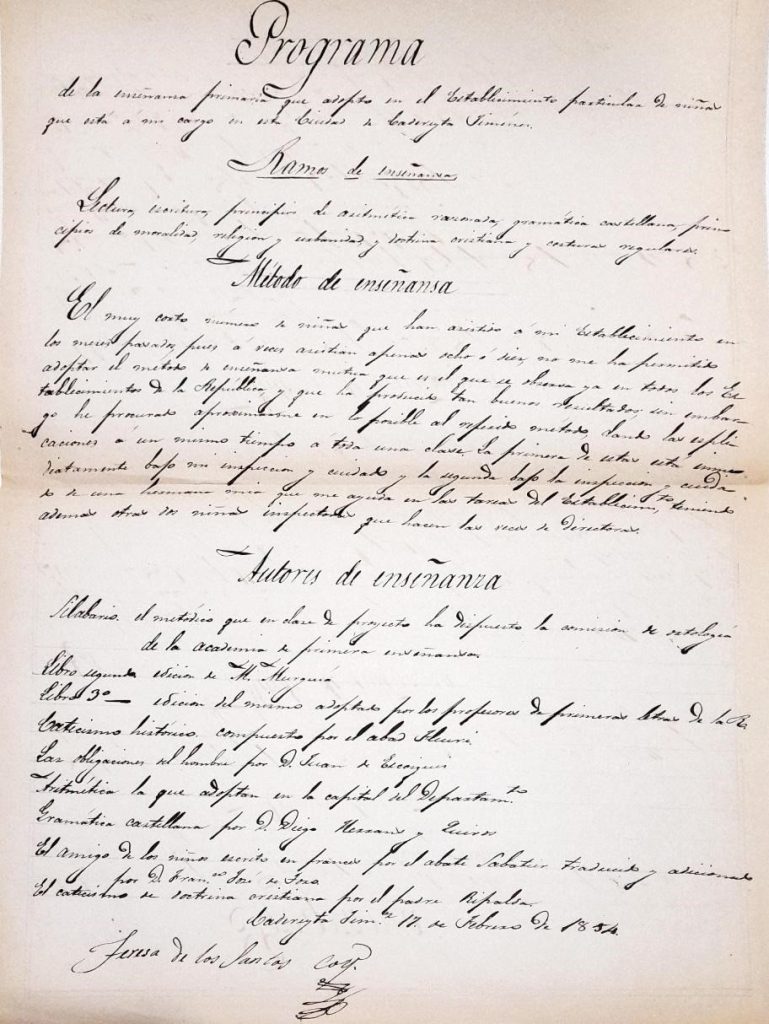 Programa
de la enseñanza primaria que adopto en el Establecimiento particular de niñas
que está a mi cargo en esta Ciudad de Cadereyta Jiménez.
Ramos de enseñanza
Lectura, escritura, principios de aritmética razonada, gramática castellana, prin-
cipios de moralidad, religion y urbanidad, y doctrina cristiana y costuras regulares.
Método de enseñansa
El muy corto número de niñas que han asistido a mi Establecimiento en
los meses pasados, pues á veces asistian apenas ocho ó diez, no me ha permitido
adoptar el metodo de enseñanza mutua que es el que se observa ya en todos los Es-
tablecimientos de la Republica, y que ha producido tan buenos resultados; sin embar-
go he procurado aproximarme en lo posible al referido metodo, dando las espli-
caciones á un mismo tiempo a toda una clase. La primera de estas está inme-
diatamente bajo mi inspeccion y cuidado y la segunda bajo la inspeccion y cuida-
do de una hermana mia que me ayuda en las tareas del Establecim.to teniendo
ademas otras dos niñas inspectoras que hacen las veces de directora.
Autores de enseñanza
Silabario. el metódico que en clase de proyecto ha dispuesto la comision de ortologia
de la academia de primera enseñansa.
Libro segundo edicion de M. Murguia
Libro 3º — edicion del mismo adoptado por los profesores de primeras letras de la R.
Catecismo histórico compuesto por el abad Fleuri.
Las obligaciones del hombre por D. Juan de Escoiquis
Aritmética la que adoptan en la capital del Departam.to
Gramática castellana por D. Diego Herranz y Quiros
El amigo de los niños escrito en frances por el abate Sabatier traducido y adicionado
por D. Fran.co José de
El catecismo de doctrina cristiana por el padre Ripalda.
Cadereyta Jim.z 17. de Febrero de 1854.
Teresa de los Santos Coy.